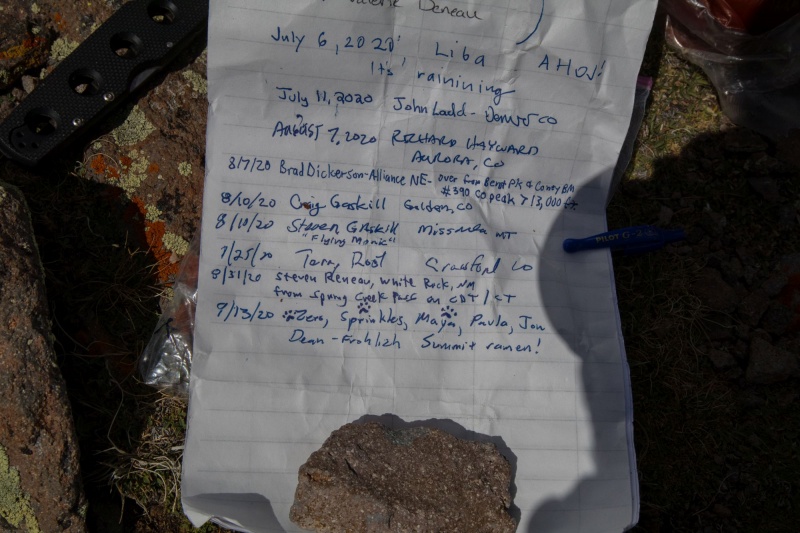 Valerie Deneau
July 6, 2020 Liba AHOJ!
It's rainining
July 11, 2020 John Ladd - Denver CO
AUGUST 7, 2020 RICHARD HAYWARD
AURORA, CO
8/7/20 Brad Dickerson - Alliance NE - over from Bent Pk & Coney BM
#390 CO peak > 13,000 ft
8/10/20 Craig Gaskill Golden, CO
8/10/20 Steven Gaskill Missoula MT
"Flying Monic"
7/25/20 Crawford CO
8/31/20 Steven Reneau, White Rock, NM
from Spring Creek Pass on CDT / CT
9/13/20 Zero, Sprinkles, Maya, Paula, Jon
Dean-Frohlich Summit ramen!
PILOT G-2